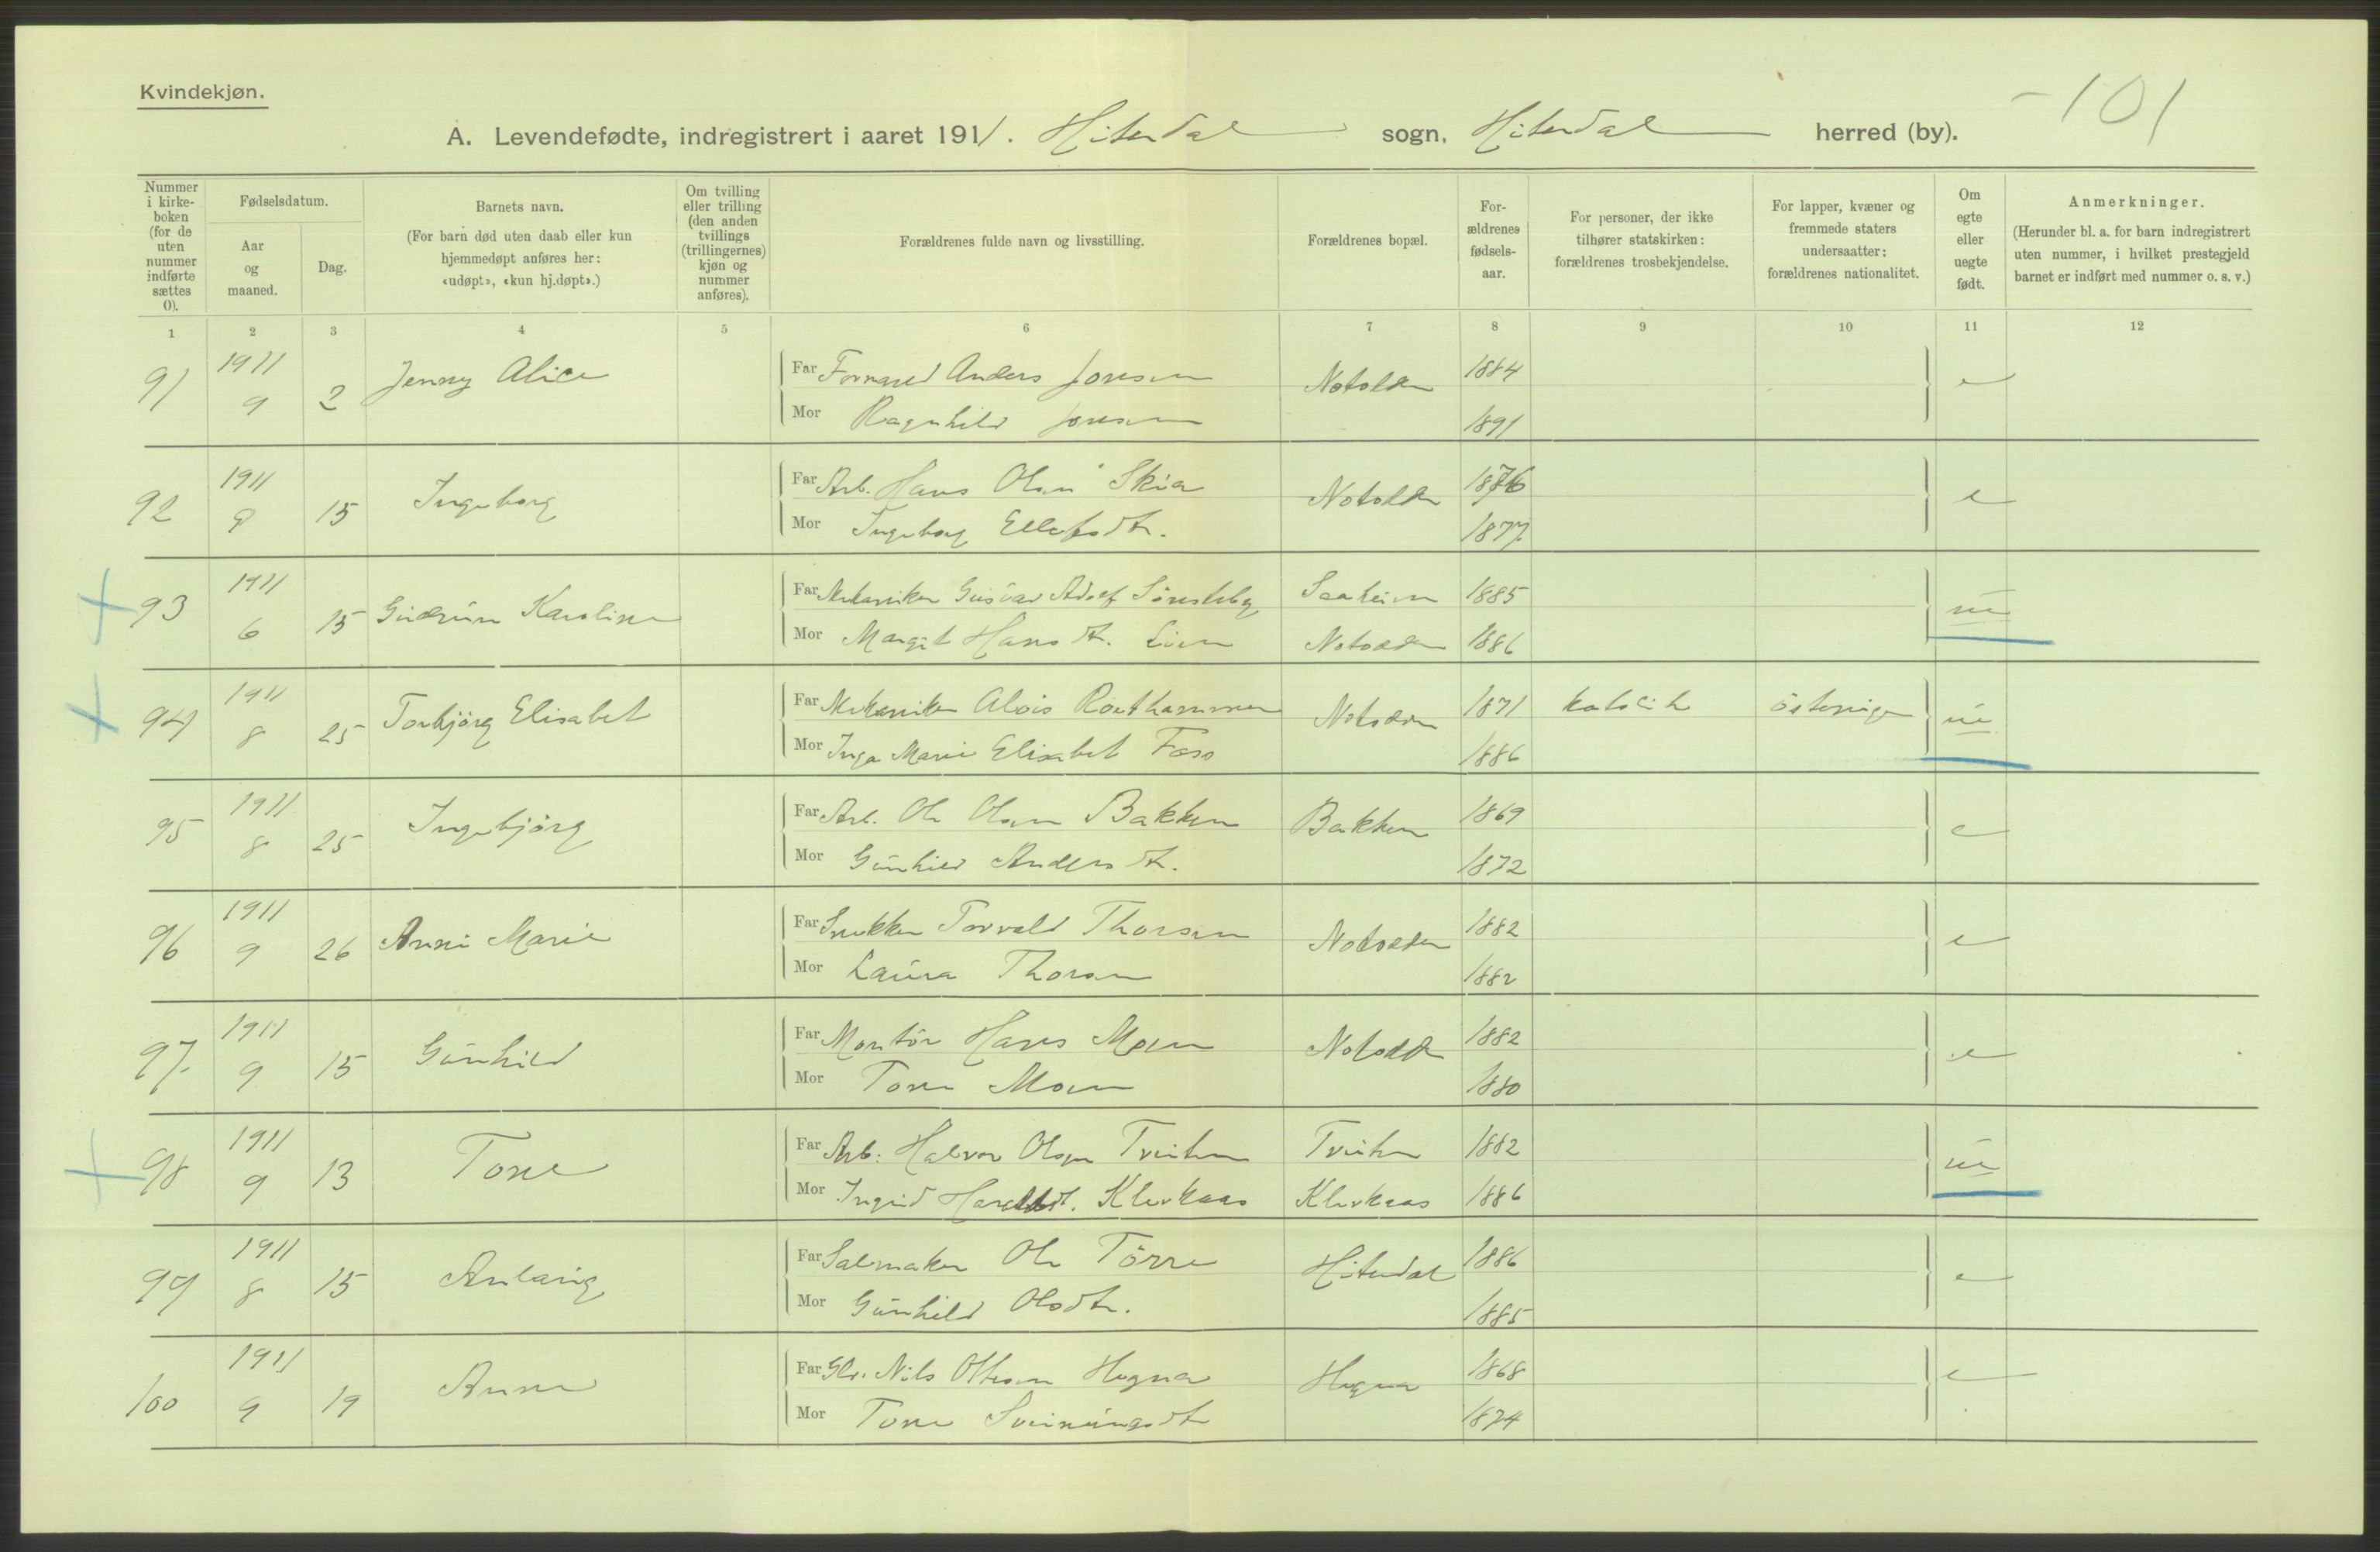 Kvindekjøn.
- 101
A. Levendefødte, indregistrert i aaret 1911. Hiterdal sogn, Hiterdal herred (by).
Nummer i kirke-boken (for de uten nummer indførte sættes 0).
Fødselsdatum.
Aar og maaned.
Dag.
Barnets navn.
(For barn død uten daab eller kun hjemmedøpt anføres her: «udøpt», «kun hj.døpt».)
Om tvilling eller trilling (den anden tvillings (trillingernes) kjøn og nummer anføres).
Forældrenes fulde navn og livsstilling.
Forældrenes bopæl.
For-ældrenes fødsels-aar.
For personer, der ikke tilhører statskirken: forældrenes trosbekjendelse.
For lapper, kvæner og fremmede staters undersaatter: forældrenes nationalitet.
Om egte eller uegte født.
Anmerkninger.
(Herunder bl. a. for barn indregistrert uten nummer, i hvilket prestegjeld barnet er indført med nummer o. s. v.)
1 2 3 4 5 6 7 8 9 10 11 12
91 1911 9 2 Jenny Alice Far Formand Anders Jonsen Notodden 1884 e
Mor Ragnhild Jonsen 1891
92 1911 9 15 Ingeborg Far Arb. Hans Olsen Skia Notodden 1876 e
Mor Ingeborg Ellefsdtr. 1877
93 1911 6 15 Gudrun Karoline Far Mekaniker Gustav Adolf Saaheim 1885 ue
Mor Margit Hansdtr. Lien Notodden 1886
94 1911 8 25 Torbjörg Elisabet Far Mekaniker Alois Notodden 1871 katolik österrige ue
Mor Inga Marie Elisabet Foss 1886
95 1911 8 25 Ingebjörg Far Arb. Ole Olsen Bakken Bakken 1869 e
Mor Gunhild Andersdtr. 1872
96 1911 9 26 Anni Marie Far Snekker Torvald Thorsen Notodden 1882 e
Mor Laura Thorsen 1882
97. 1911 9 15 Gunhild Far Montör Hans Moen Notodden 1882 e
Mor Tone Moen 1880
98 1911 9 13 Tone Far Arb. Halvor Olsen Tveiten Tveiten 1882 ue
Mor Ingrid Haraldsdt. Klevkaas Klevkaas 1886
99 1911 8 15 Anlaug Far Salmaker Ole Törre Hiterdal 1886 e
Mor Gunhild Olsdtr. 1885
100 1911 9 19 Anne Far Nils Ottesen Hogna Hogna 1868 e
Mor Tone Sveinungsdtr 1874